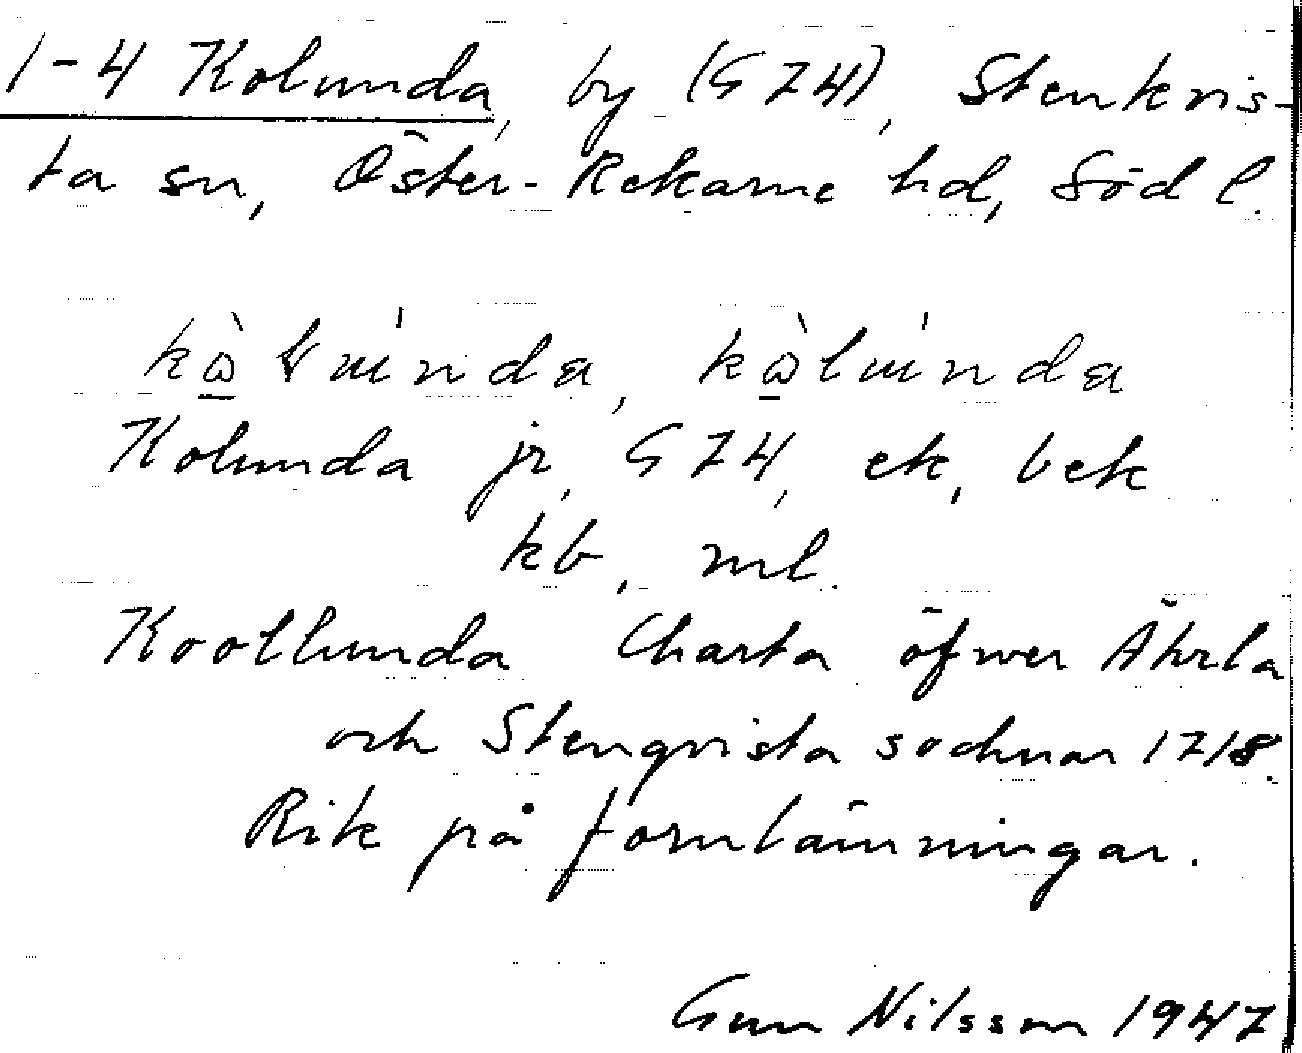 1-4 Kolunda, by (G 74), Stenkvis-
ta sn, Öster-Rekarne hd, Södl.
Kolunda jr, G 74, ek, bek
kb, ml.
Koollunda Charta öfwer Ährla
och Stenqvista sochnar 1718.
Rik på fornlämningar.
Gun Nilsson 1947